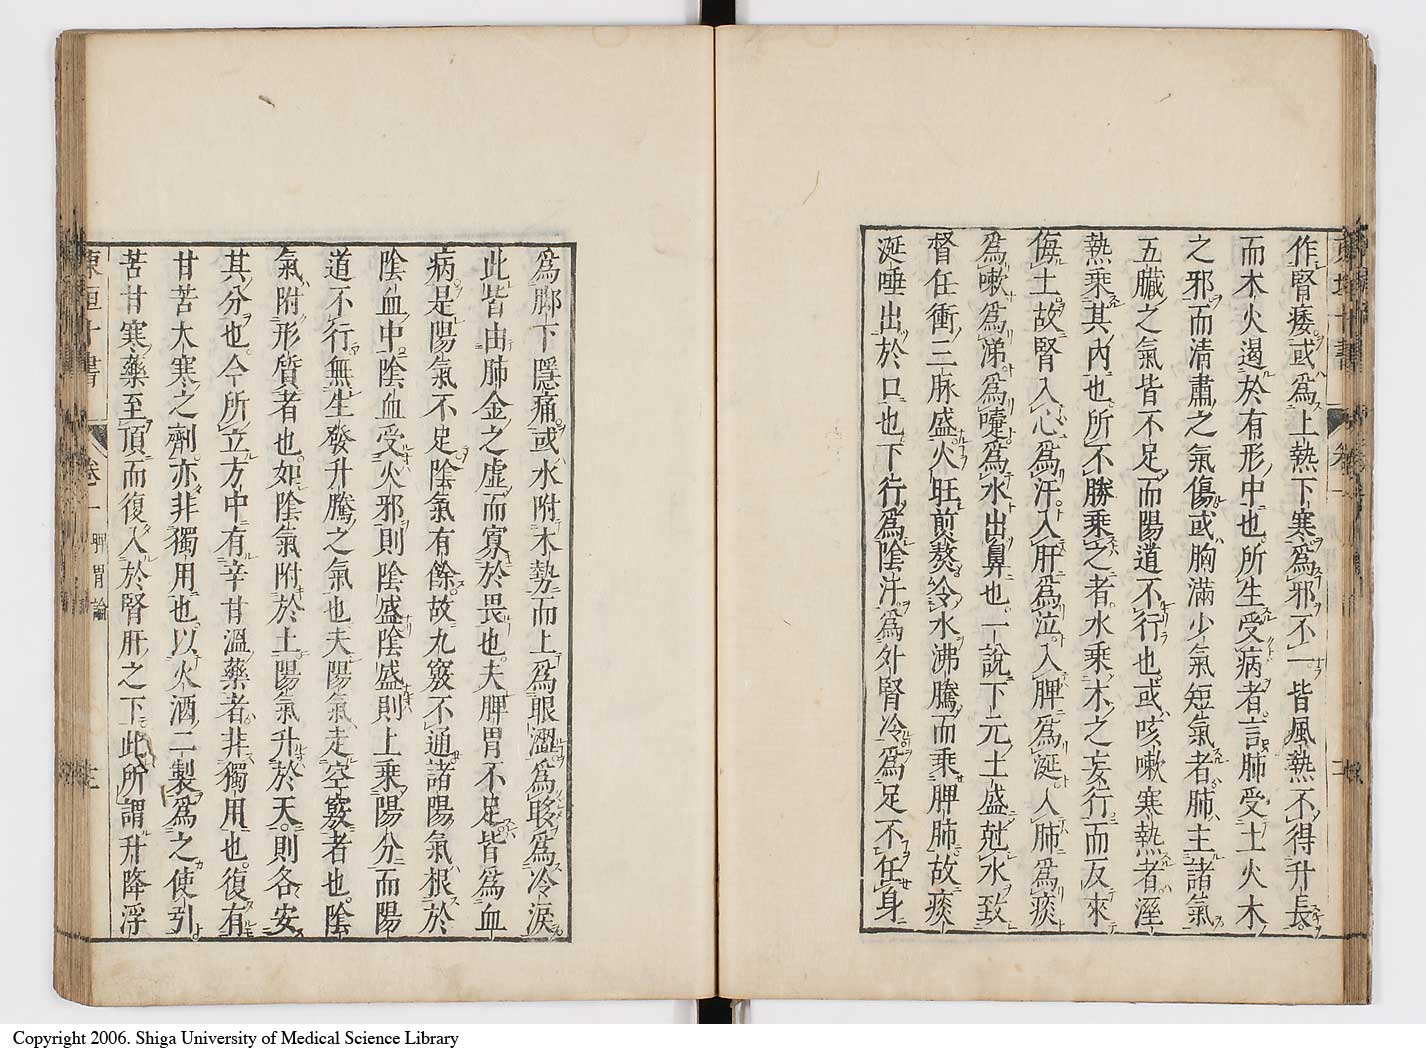 作腎痿或爲上熱下寒爲邪不一皆風熱不得升長
而木火遏於有形中也所生受病者言肺受土火木
之邪而清肅之氣傷或胸滿少氣短氣者肺主諸氣
五臟之氣皆不足而陽道不行也或咳嗽寒熱者溼
熱乘其內也所不勝乘之者水乘木之妄行而反來
侮土故腎入心爲汗入肝爲泣入脾爲涎入肺爲痰
爲嗽爲涕爲嚏爲水出鼻也一說下元土盛尅水致
督任衝三脉盛火旺煎熬令水沸騰而乘脾肺故痰
涎唾出於口也下行爲陰汗爲外腎冷爲足不任身
爲脚下隱痛或水附木勢而上爲眼澀爲眵爲冷淚
此皆由肺金之虛而寡於畏也夫脾胃不足皆爲血
病是陽氣不足陰氣有餘故九竅不通諸陽氣根於
陰血中陰血受火邪則陰盛陰盛則上乘陽分而陽
道不行無生發升騰之氣也夫陽氣走空竅者也陰
氣附形質者也如陰氣附於土陽氣升於天則各安
其分也今所立方中有辛甘溫藥者非獨用也復有
甘苦大寒之劑亦非獨用也以火酒二製爲之使引
苦甘寒藥至頂而復入於腎肝之下此所謂升降浮
東垣十書 卷一 脾胃論